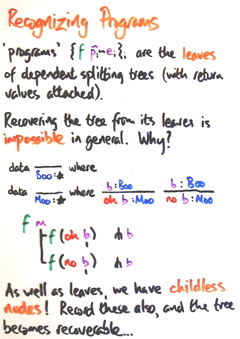 Recognizing Programs
'programs' {f p⃗ᵢ ↦ eᵢ}ᵢ are the leaves
of dependent splitting trees (with return
values attached).
Recovering the tree from its leaves is
impossible in general. Why?
data Boo : ★ where
data Moo : ★ where b : Boo oh b : Moo b : Boo no b : Moo
f m
f (oh b) ⋔ b
f (no b) ⋔ b
As well as leaves, we have childless
nodes! Record these also, and the tree
becomes recoverable...